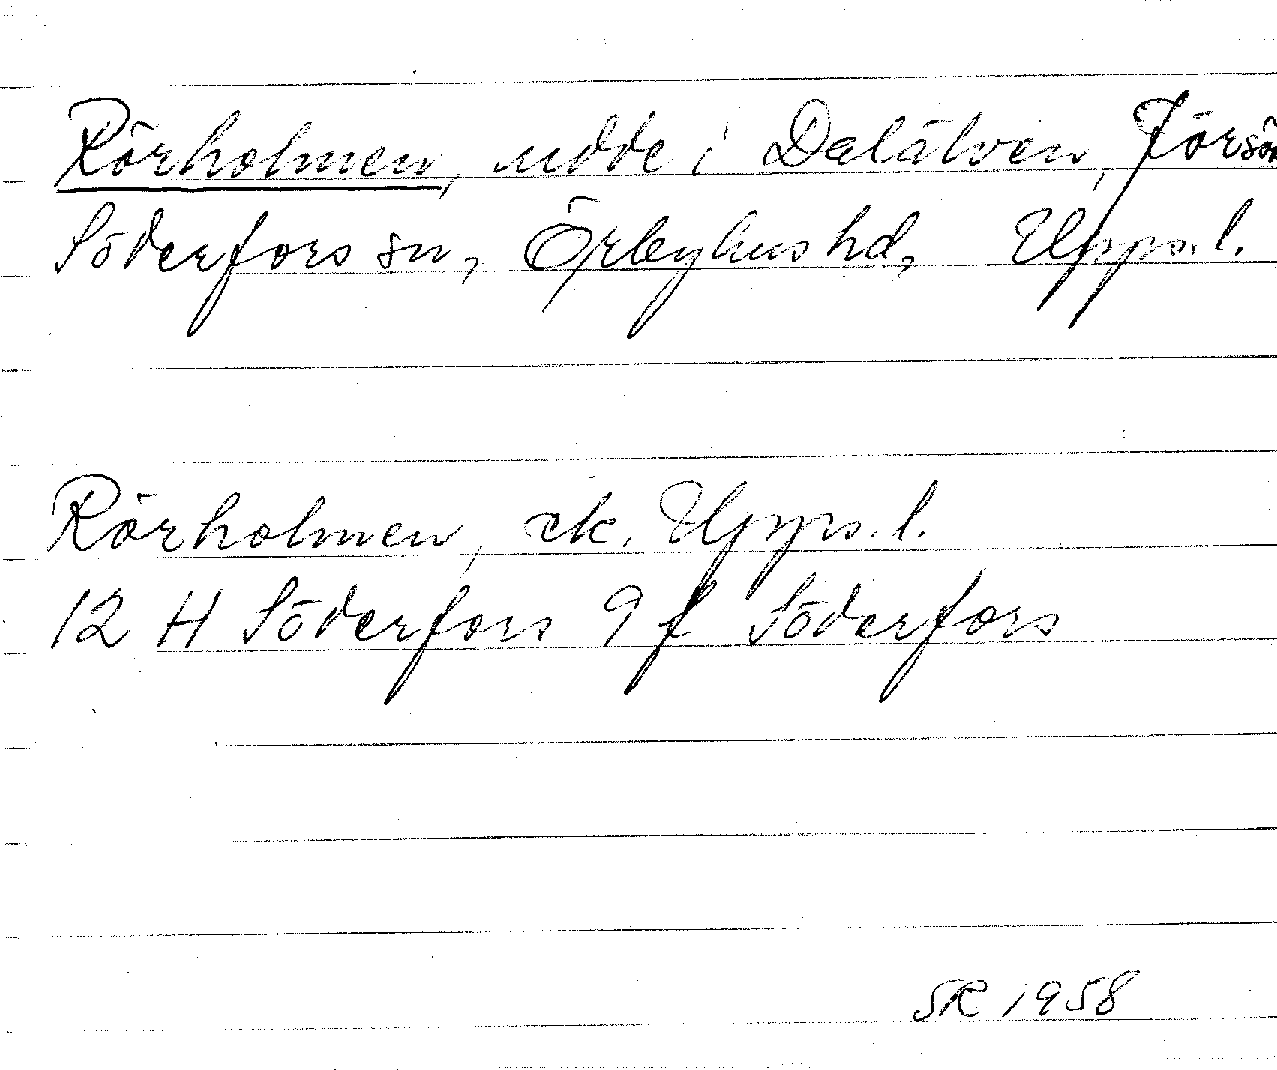 Rörholmen, udde i Dalälven, Jörsön
Söderfors sn, Örbyhus hd, Upps. l.
Rörholmen, ek. Upps. l.
12 H Söderfors 9 f Söderfors
SR 1958